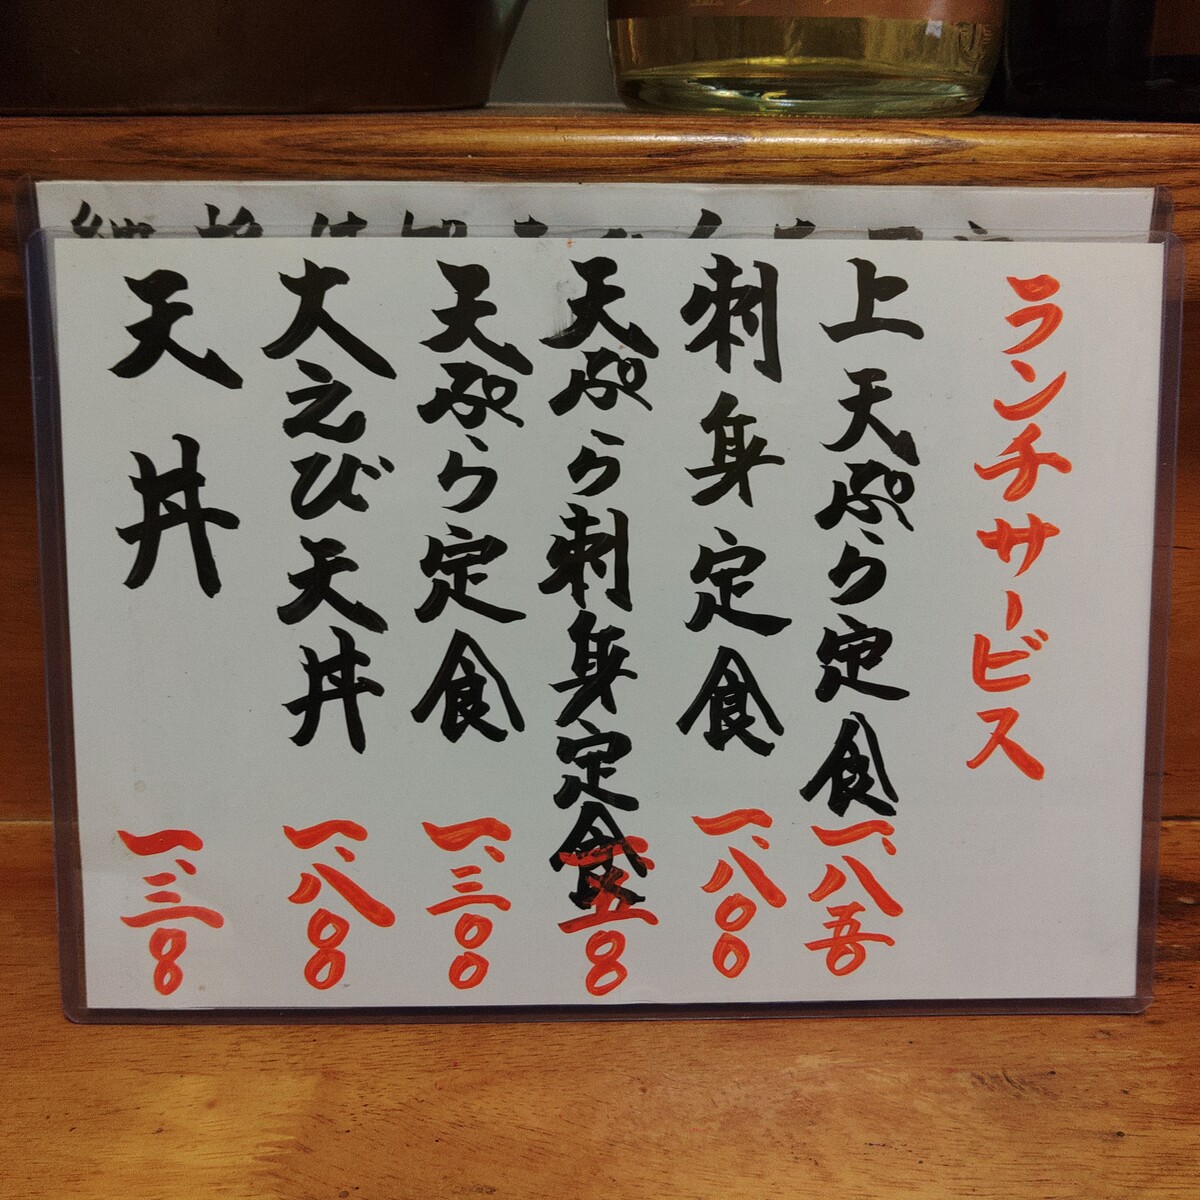 ランチサービス
上天ぷら定食 一、八五〇
刺身定食 一、八〇〇
天ぷら刺身定食 二、五〇〇
天ぷら定食 一、三〇〇
大えび天丼 一、八〇〇
天丼 一、三〇〇